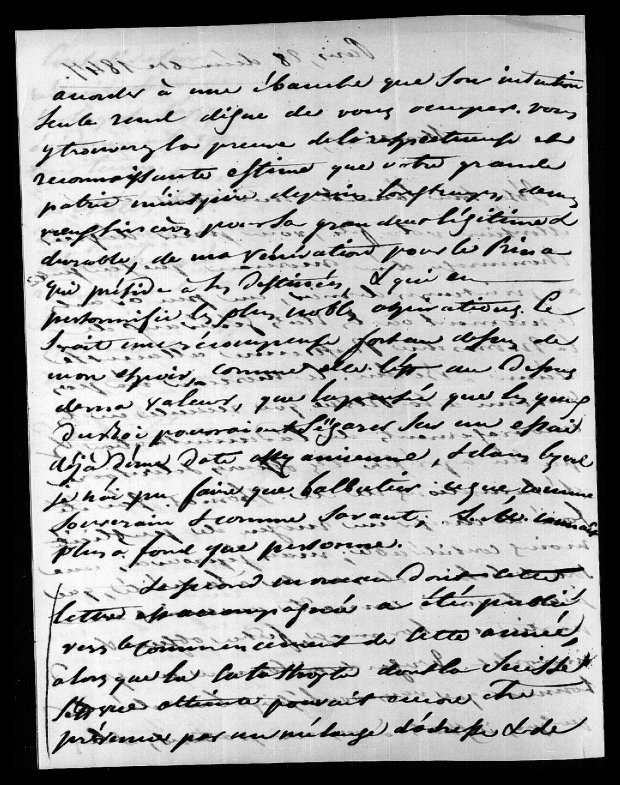 accorder à une ébauche que son intention
seule rend digne de vous occuper. Vous
y trouverez la preuve de la respectueuse et
reconnaissante estime que votre grande
patrie m'inspire depuis longtemps, de mes
vœux sincères pour sa grandeur légitime &
durable, de ma vénération pour le Prince
qui préside à ses destinées, & qui en
personnifie les plus nobles aspirations. Ce
serait une récompense fort au dessus de
mon espoir, comme elle l'est au dessus
de ma valeur, que la pensée que les yeux
du Roi pourraient s'égarer sur un essai
déjà d'une date assez ancienne, & dans lequel
je n'ai pu faire que balbutier ce que, comme
Souverain & comme Savant, connaît
plus à fond que personne.
Le second morceau dont cette
lettre est accompagnée a été publié
vers le commencement de cette année
alors que la Catastrophe dont la Suisse
atteinte pouvait encore être
prévenue par un mélange d'adresse & de